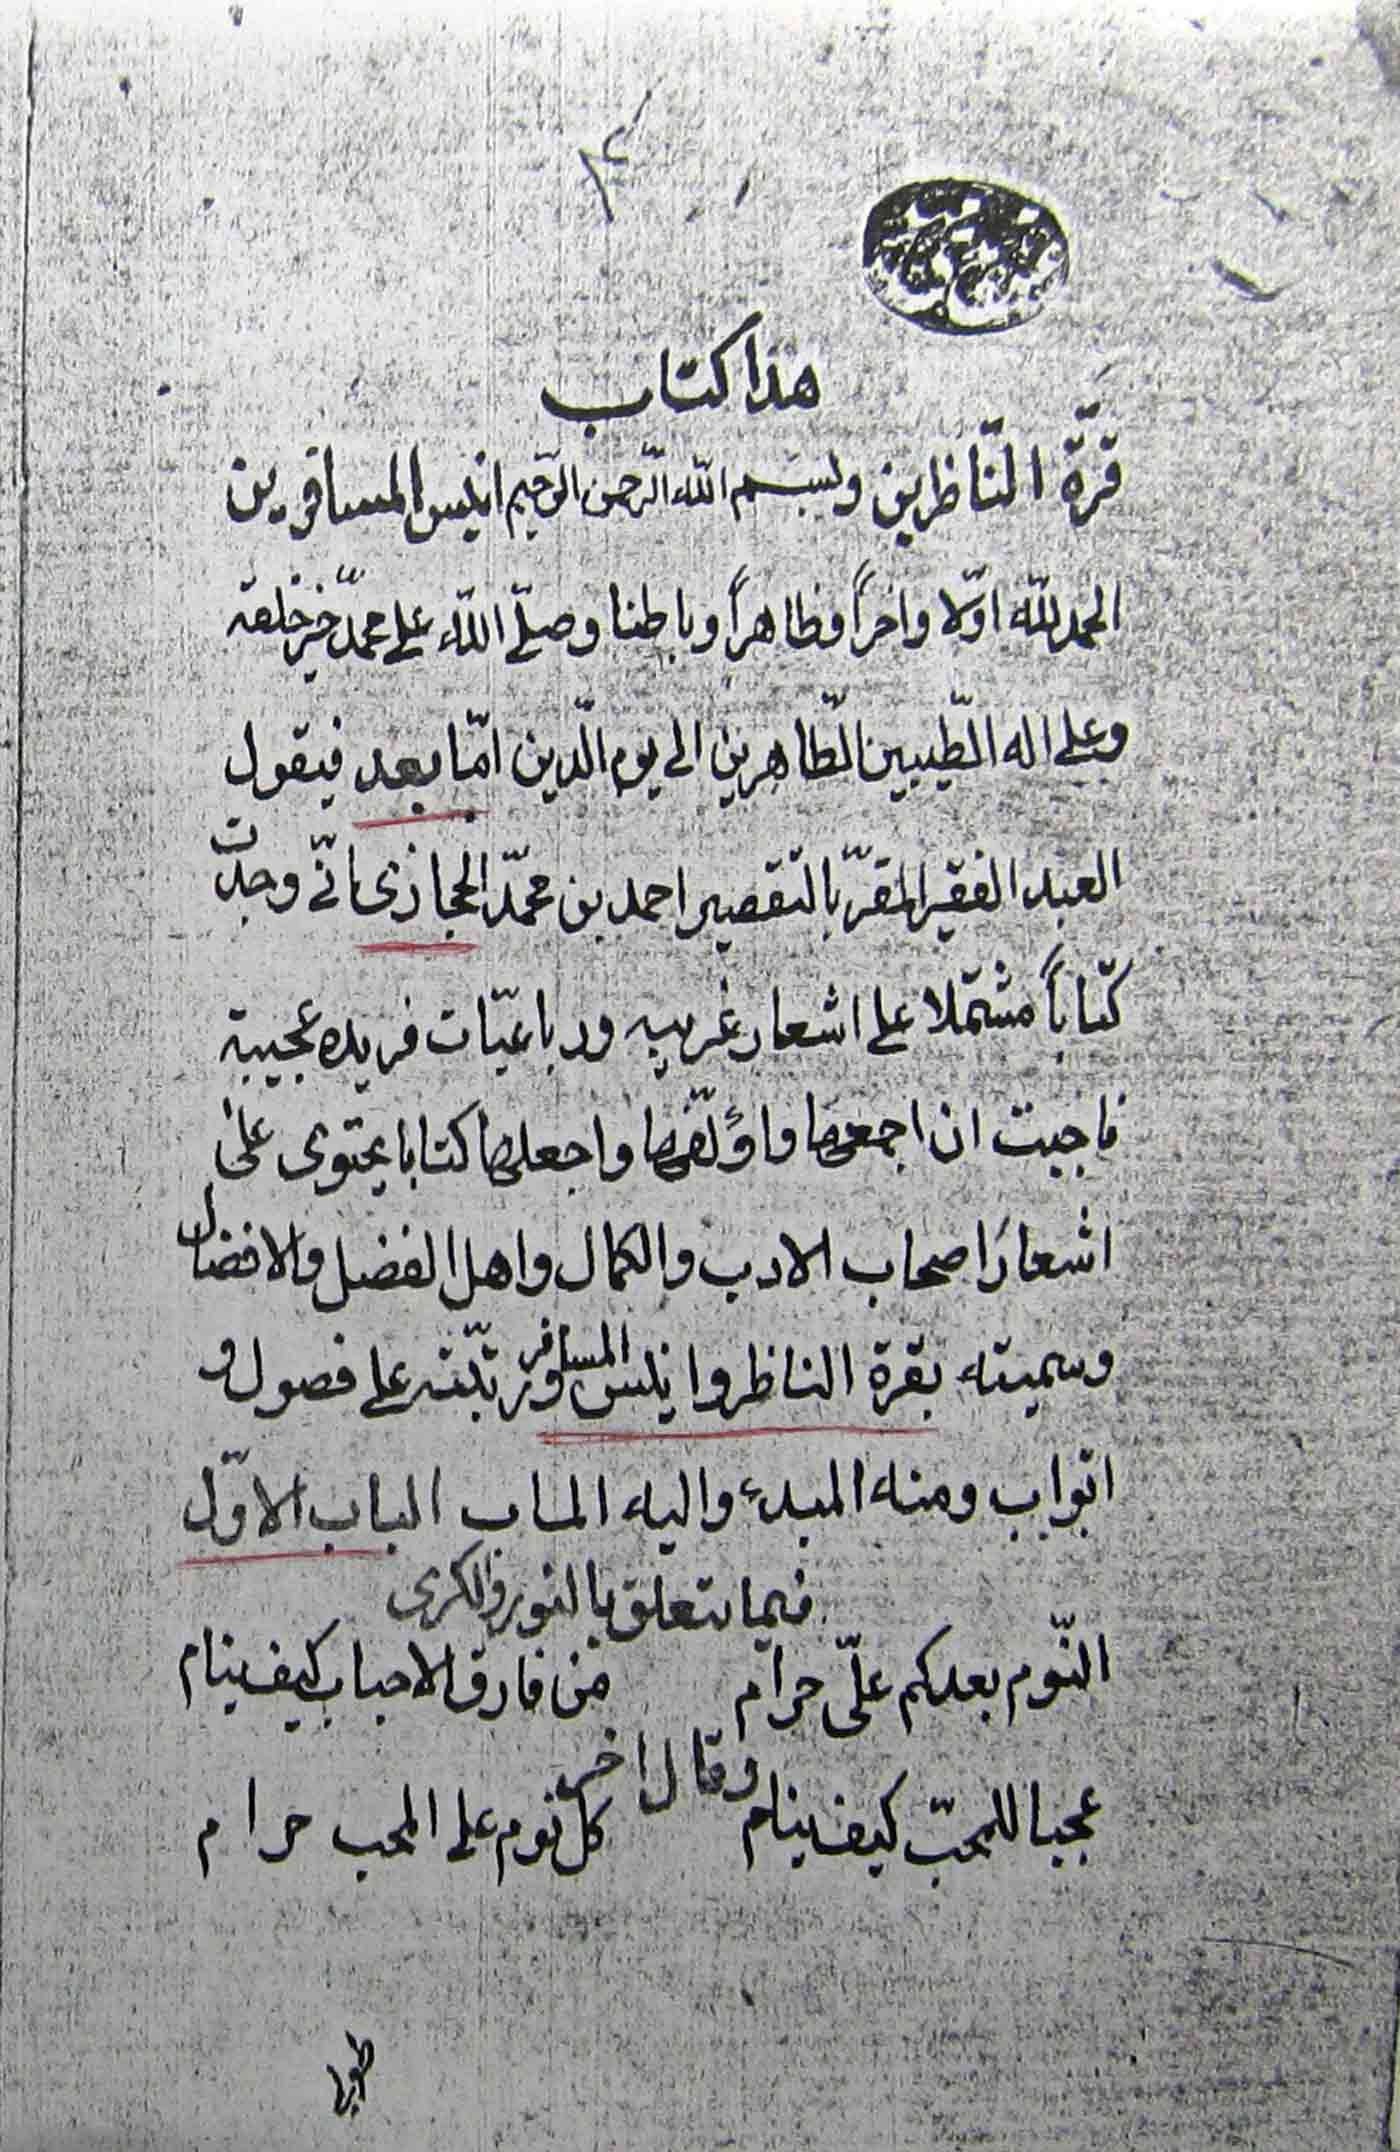 هذا كتاب
قرّة النّاظرين وبسم اللّه الرّحمن الرّحيم انيس المسافرين
الحمد للّه اوّلا واخراً وظاهراً وباطنا وصلّى اللّه على محمّد خير خلقه
وعلى اله الطّيبين الطّاهرين الى يوم الدّين امّا بعد فيقول
العبد الفقير المقرّ بالتقصير احمد بن محمّد الحجازى انّى وجدت
كتاباً مشتملا على اشعار غريبه ورباعيّات فريده عجيبة
فاجبت ان اجمعها واؤلّفها واجعلها كتابا يحتوى على
اشعار اصحاب الادب والكمال واهل الفضل والافضال
وسميته بقرة الناظر وانيس المسافر ورتّبته على فصول و
ابواب ومنه المبدء واليه الماب الباب الاوّل
فيما يتعلق بالنوم والكرى
النّوم بعدكم علىّ حرام من فارق الاحباب كيف ينام
وقال اخر
عجبا للمحبّ كيف ينام كل نوم على المحب حرام